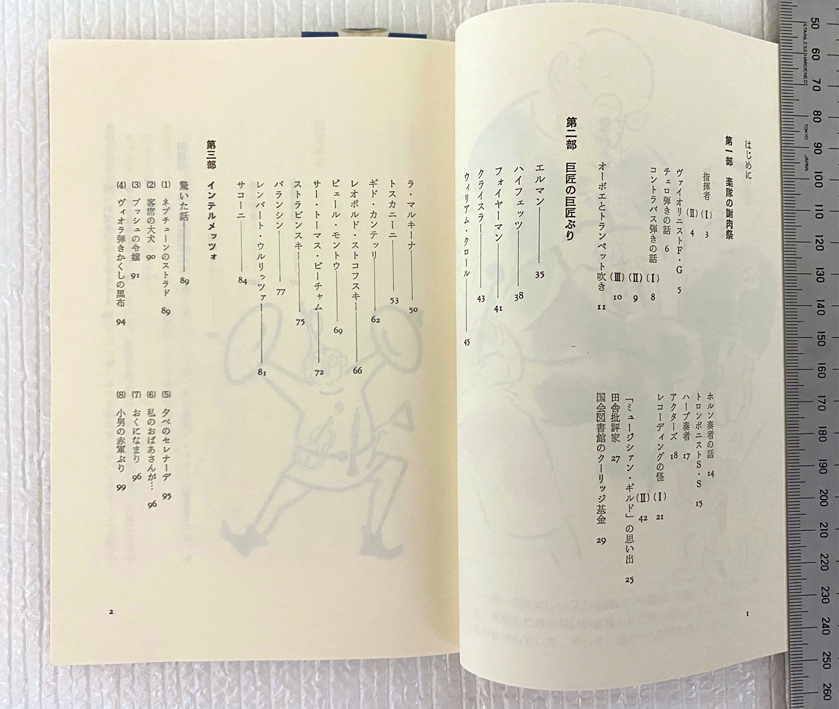 はじめに
第一部 楽隊の謝肉祭
指揮者 (Ⅰ) 3
(Ⅱ) 4
ヴァイオリニストF・G 5
チェロ弾きの話 6
コントラバス弾きの話 (Ⅰ) 8
(Ⅱ) 9
(Ⅲ) 10
オーボエとトランペット吹き 11
ホルン奏者の話 14
トロンボニストS・S 15
ハープ奏者 17
アクターズ 18
レコーディングの怪 (Ⅰ) 21
(Ⅱ) 42
「ミュージシアン・ギルド」の思い出 25
田舎批評家 27
国会図書館のクーリッジ基金 29
第二部 巨匠の巨匠ぶり
エルマン 35
ハイフェッツ 38
フォイヤーマン 41
クライスラー 43
ウィリアム・クロール 45
1
ラ・マルキーナ 50
トスカニーニ 53
ギド・カンテッリ 62
レオポルド・ストコフスキー 66
ピェール・モントウ 69
サー・トーマス・ビーチャム 72
ストラビンスキー 75
バランシン 77
レンバート・ウルリッツァー 81
サコーニ 84
第三部 インテルメッツォ
驚いた話 89
(1) ネプチューンのストラド 89
(2) 客席の大犬 90
(3) ブッシュの令嬢 91
(4) ヴィオラ弾きかくしの黒布 94
(5) 夕べのセレナーデ 95
(6) 私のおばあさんが… 96
(7) おくになまり 96
(8) 小男の赤軍ぶり 99
2
50 60 70 80 90 100 110 120 130 140 150 160 170 180 190 200 210 220 230 240 250 260
STAINLESS HARDENED
TOKYO
JAPAN